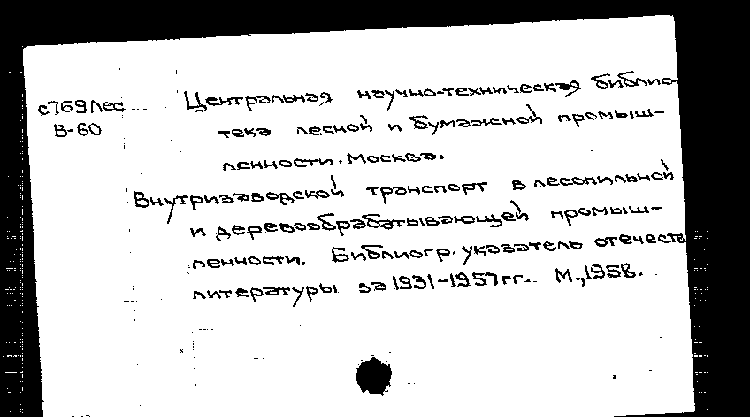 с769лес Центральная научно-техническая библио-
В-60 тека лесной и бумажной промыш-
ленности. Москва.
Внутризаводской транспорт в лесопильной
и деревообрабатывающей промыш-
ленности. Библиогр. указатель отечеств
литературы за 1931-1957гг. М.,1958.